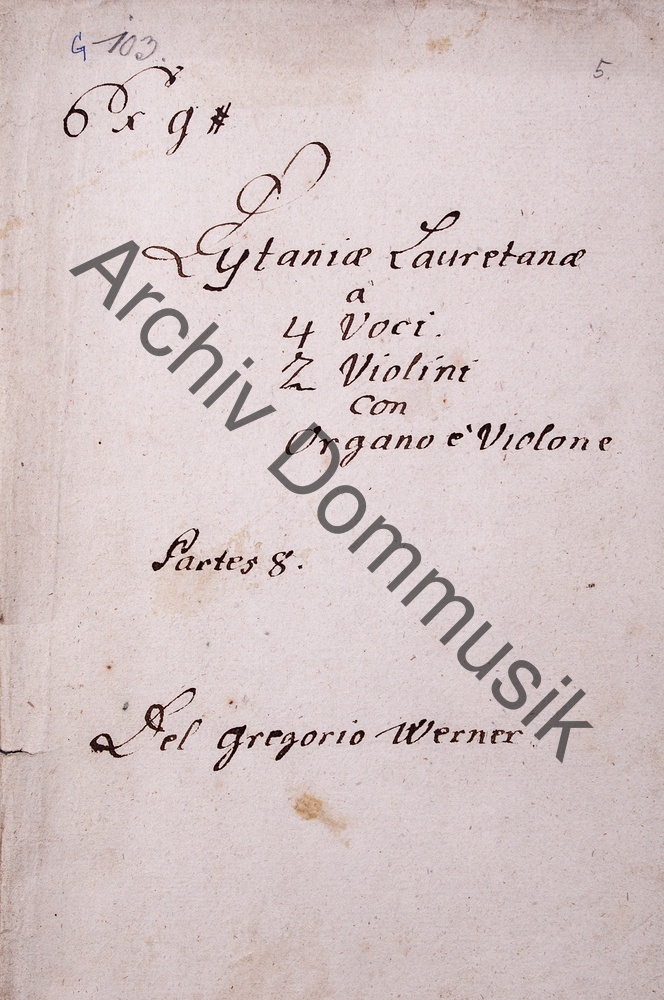 G 103.
5.
6 x g #
Lytaniæ Lauretanæ
a
4 Voci.
2 Violini
con
Organo è Violone
Partes 8.
Del Gregorio Werner
Archiv Dommusik